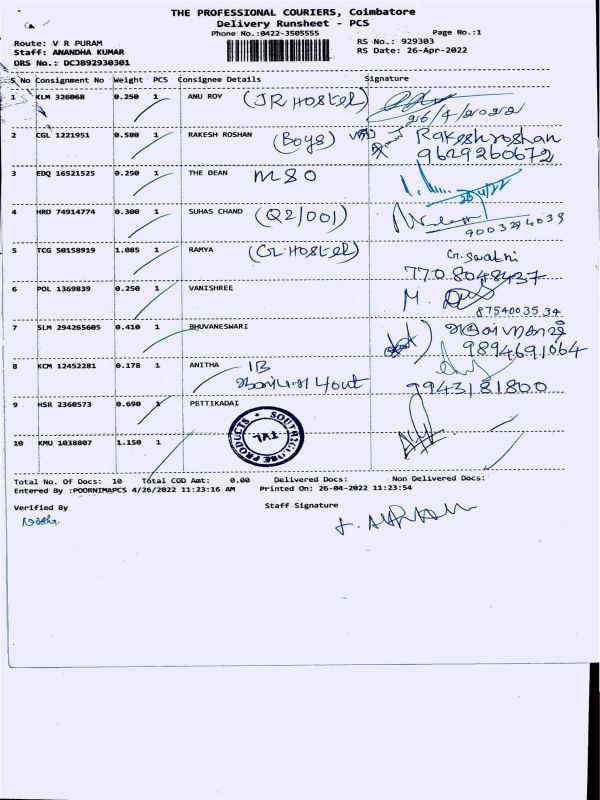 THE PROFESSIONAL COURIERS, Coimbatore
Delivery Runsheet - PCS
Phone No.:0422-3505555
Page No.:1
Route: V R PURAM
Staff: ANANDHA KUMAR
DRS No.: DCJB92930301
RS No.: 929303
RS Date: 26-Apr-2022
S No Consignment No Weight PCS Consignee Details Signature
1 KLM 326068 0.250 1 ANU ROY (JR HOSTEL)
26/4/2022
2 CGL 1221951 0.580 1 RAKESH ROSHAN (Boys) Rakeshroshan
9629260672
3 EDQ 16521525 0.250 1 THE DEAN MSO
26/4/22
4 HRD 74914774 0.300 1 SUHAS CHAND (Q2/001)
9003294039
5 TCG 50158919 1.085 1 RAMYA (GL HOSTEL) G. Swathi
7708048437
6 POL 1369839 0.250 1 VANISHREE M.
8754003534
7 SLM 294265605 0.410 1 BHUVANESWARI
9894691064
8 KCM 12452281 0.178 1 ANITHA 1B
9943181800
9 HSR 2360573 0.690 1 PETTIKADAI
PRODUCTS SOUTH
TVL
10 KMU 1038807 1.150 1
Total No. Of Docs: 10 Total COD Amt: 0.00 Delivered Docs: Non Delivered Docs:
Entered By :POORNIMAPCS 4/26/2022 11:23:16 AM Printed On: 26-04-2022 11:23:54
Verified By
Staff Signature